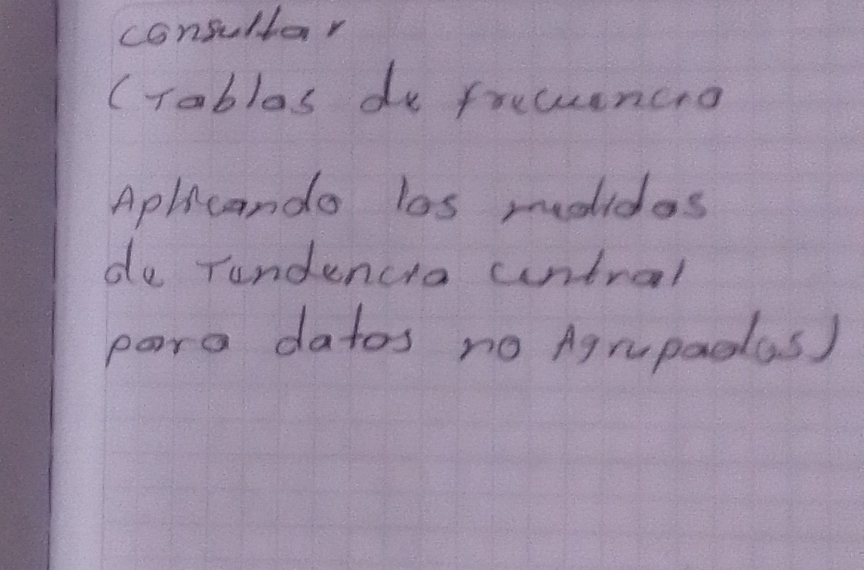 consultar
(Tablas de frecuencia
Aplicando las medidas
de Tendencia central
para datos no Agrupados)